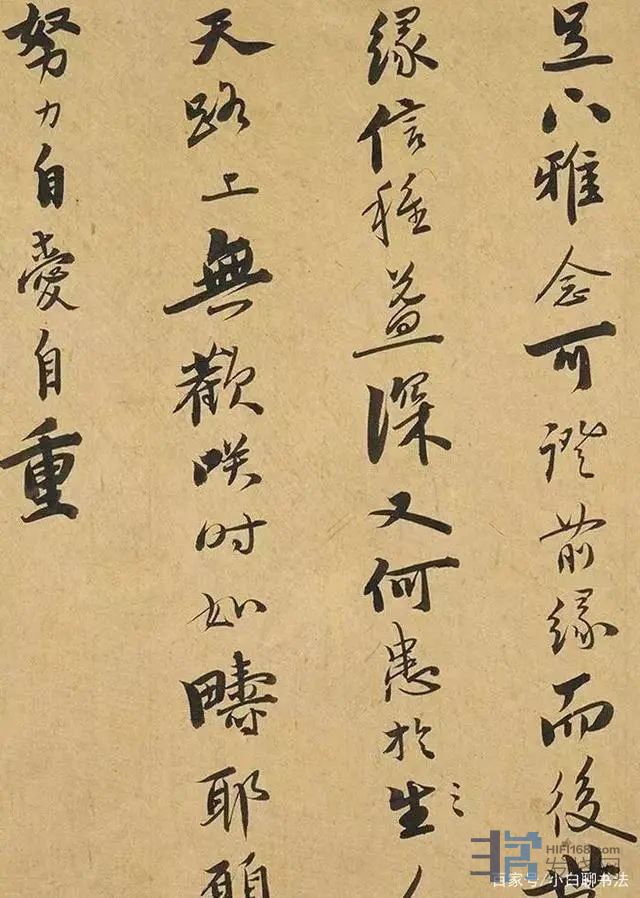 足下雅念可證前緣而後
緣信種益深又何患於生々
天路上無歡咲时如疇耶願
努力自愛自重
HIFI168.com
发烧网
百家号/小白聊书法